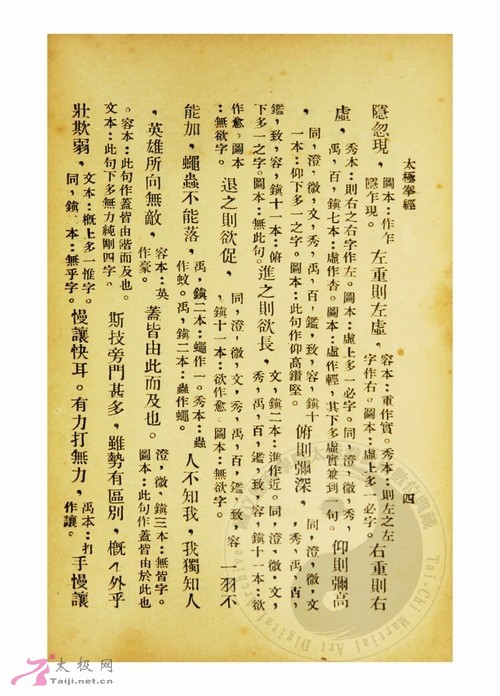 太極拳經
四
隱忽現，圖本：作乍隱乍現。左重則左虛，容本：重作實。秀本：則左之左字作右。圖本：虛上多一必字。右重則右
虛，秀本：則右之右字作左。圖本：虛上多一必字。同，澄，微，文，秀，禹，百，鎮七本：虛作杳。圖本：虛作輕，其下多虛實兼到一句。仰則彌高
，同，澄，微，文，秀，禹，百，鑑，致，容，鎮十一本：仰下多一之字。圖本：此句作仰高鑽堅。俯則彌深，同，澄，微，文，秀，禹，百，
鑑，致，容，鎮十一本：俯下多一之字。圖本：無此句。進之則欲長，文，鎮二本：進作近。同，澄，微，文，秀，禹，百，鑑，致，容，鎮十一本：欲
作愈。圖本：無欲字。退之則欲促，同，澄，微，文，秀，禹，百，鑑，致，容，鎮十一本：欲作愈。圖本：無欲字。一羽不
能加，蠅蟲不能落，禹，鎮二本：蠅作一。秀本：蟲作蚊。禹，鎮二本：蟲作蠅。人不知我，我獨知人
，英雄所向無敵，容本：英作豪。蓋皆由此而及也。澄，微，鎮三本：無皆字。圖本：此句作蓋皆由於此也
。容本：此句作蓋皆由階而及也。文本：此句下多無力純剛四字。斯技旁門甚多，雖勢有區別，概不外乎
壯欺弱，文本：概上多一惟字。同，鎮二本：無乎字。慢讓快耳。有力打無力，禹本：打作讓。手慢讓
Tai-Chi Martial Art Digital
太极网
Taiji.net.cn